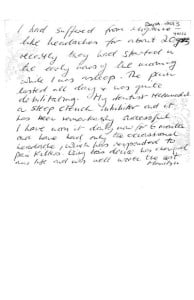 I had suffered from migraine
like headaches for about 20 yrs
recently they had started in
the early hours of the morning
while I was asleep. The pain
lasted all day & was quite
debilitating. My dentist recommended
a sleep clench inhibitor and it
has been remarkably successful
I have worn it daily now for 6 months
and have had only the occasional
headache, which has responded to
pain killers. Using this device has changed
my life and was well worth the cost